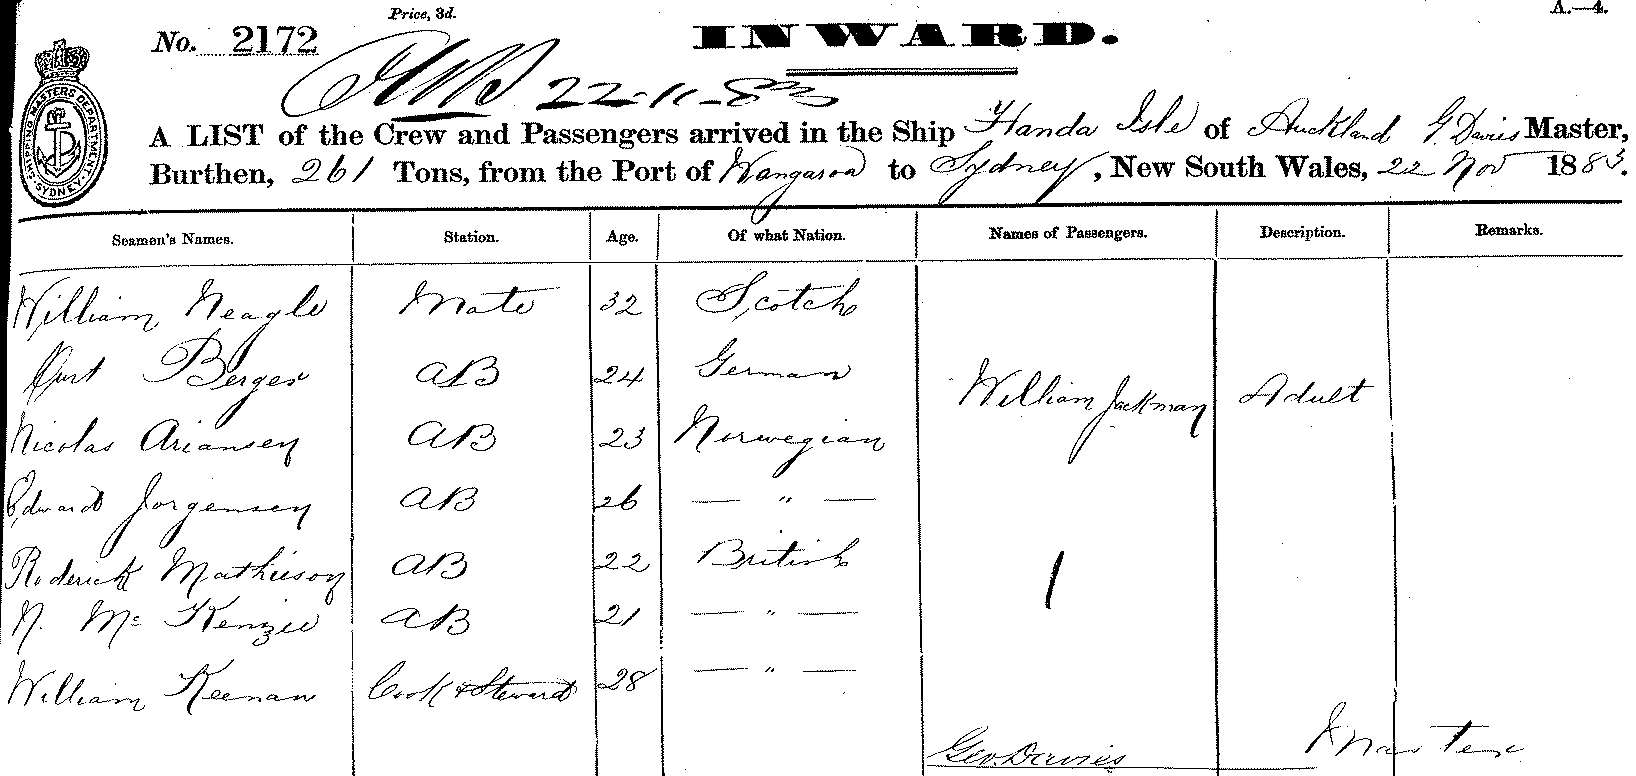 Price, 3d.
A.—4.
No. 2172
INWARD.
22-11-83
SHIPPING MASTERS DEPARTMENT SYDNEY
A LIST of the Crew and Passengers arrived in the Ship Handa Isle of Auckland G. Davies Master,
Burthen, 261 Tons, from the Port of Wangaroa to Sydney, New South Wales, 22 Nov 1883.
Seamen's Names. Station. Age. Of what Nation. Names of Passengers. Description. Remarks.
William Neagle Mate 32 Scotch
Berger AB 24 German William Jackman Adult
Nicolas Ariansen AB 23 Norwegian
Edward Jorgensen AB 26 — " —
Roderick Mathieson AB 22 British 1
N. Mc Kenzie AB 21 — " —
William Keenan Cook & Steward 28 — " —
Geo. Davies Master